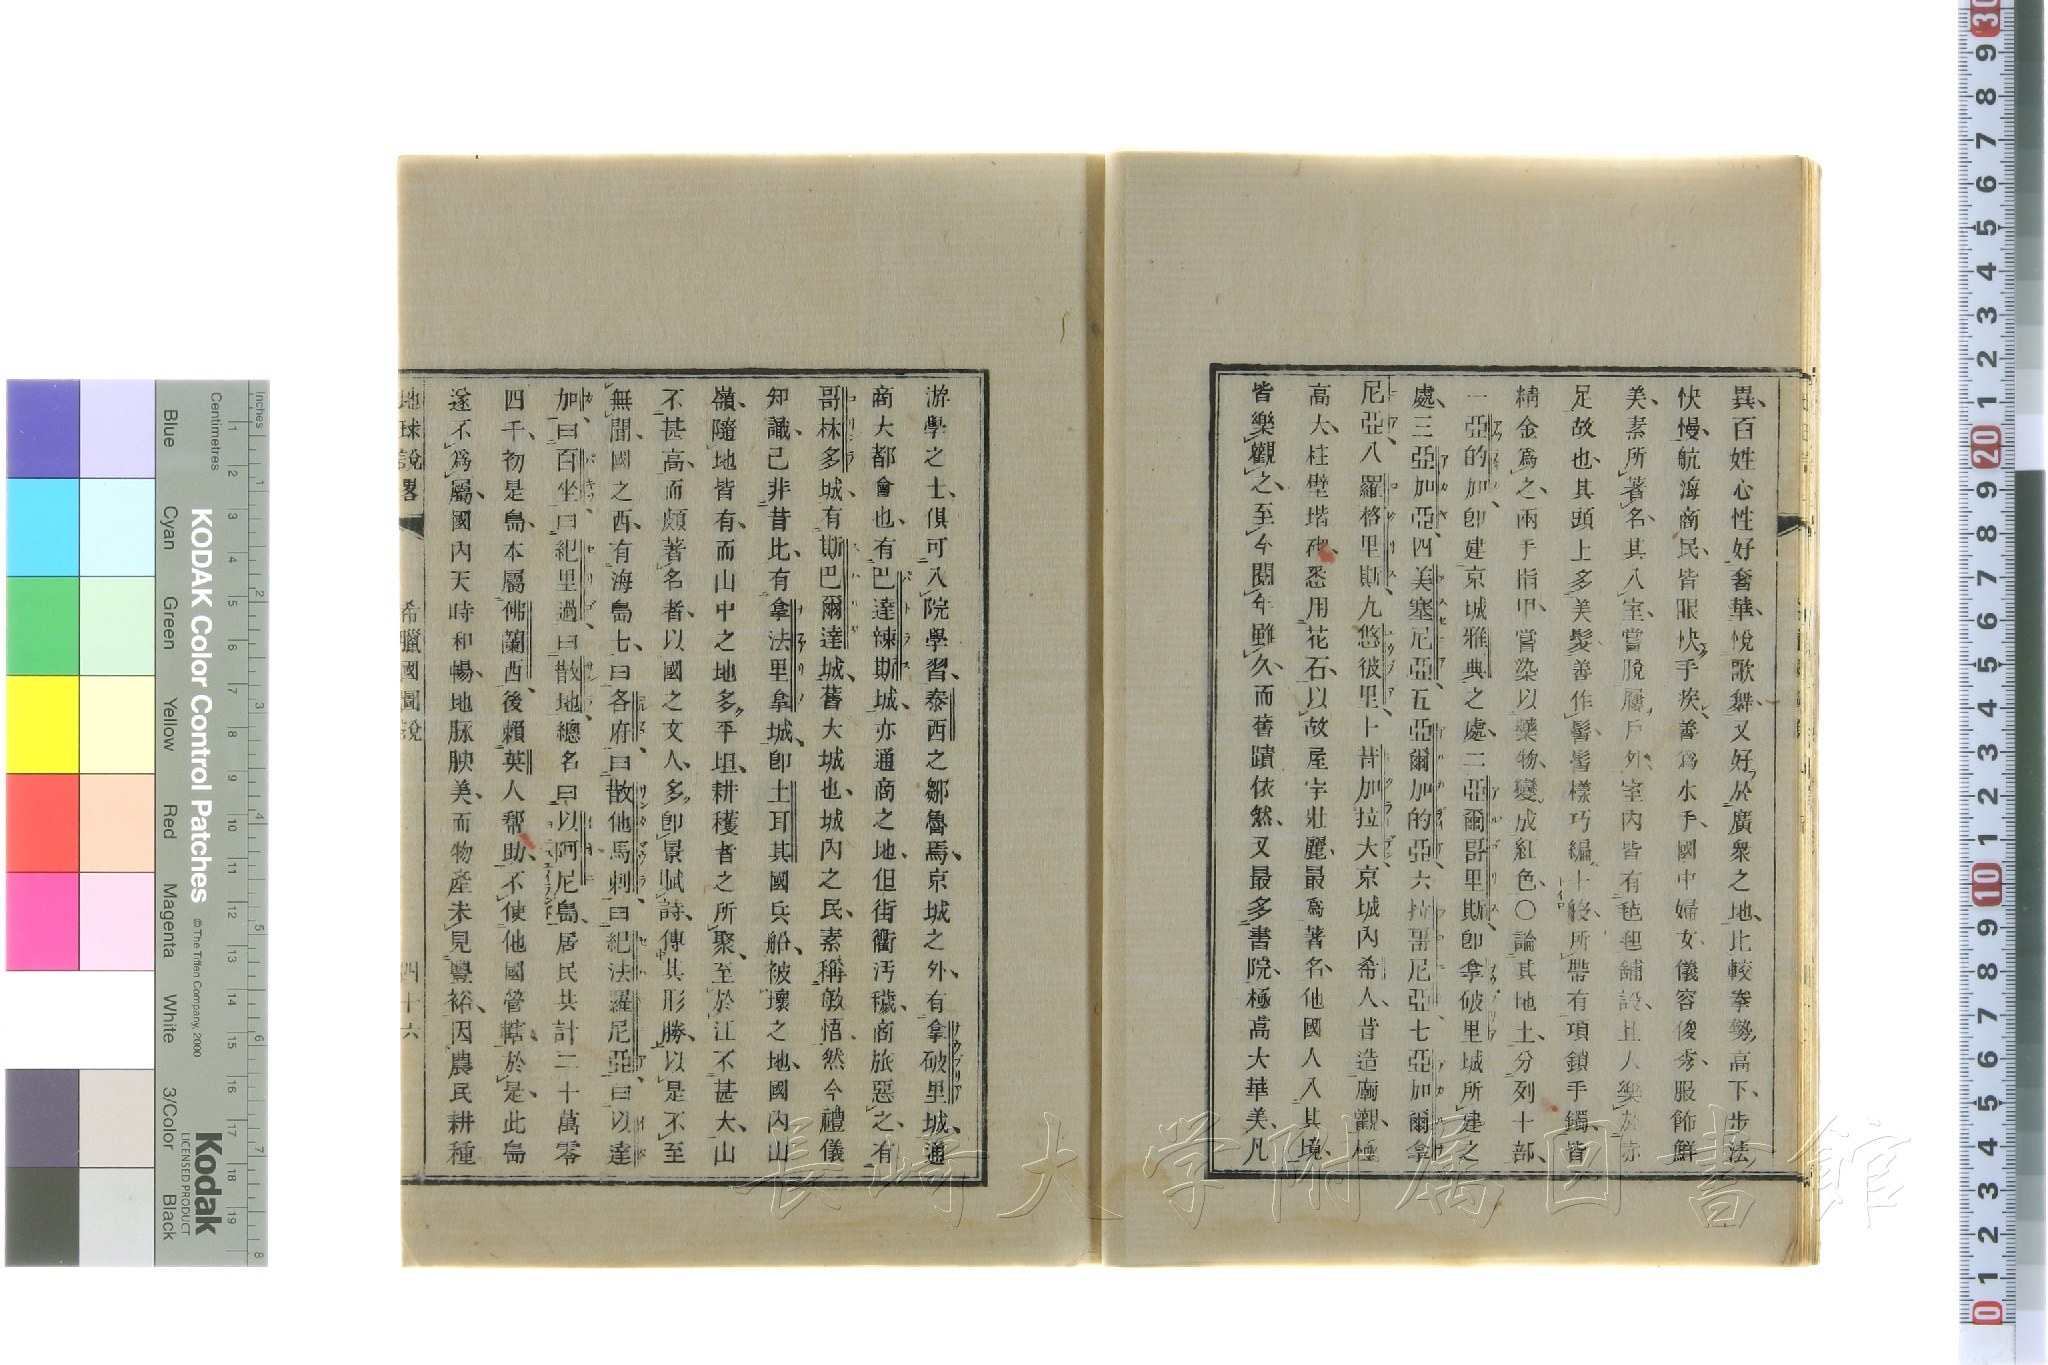 異百姓心性好奢華悅歌舞又好於廣衆之地比較拳勢高下步法
快慢航海商民皆眼快手疾善爲水手國中婦女儀容俊秀服飾鮮
美素所著名其入室嘗脫屨戶外室內皆有毡毯鋪設且人樂於赤
足故也其頭上多美髮善作鬙髻樣巧編十般所帶有項鎖手鐲皆
精金爲之兩手指甲嘗染以藥物變成紅色〇論其地土分列十部
一亞的加卽建京城雅典之處二亞爾哥里斯卽拿破里城所建之
處三亞加亞四美塞尼亞五亞爾加的亞六拉哥尼亞七亞加爾拿
尼亞八羅格里斯九悠彼里十昔加拉大京城內希人昔造廟觀極
高大柱壁堦砌悉用花石以故屋宇壯麗最爲著名他國人入其境
皆樂觀之至今閱年雖久而舊蹟依然又最多書院極高大華美凡
游學之士俱可入院學習泰西之鄒魯焉京城之外有拿破里城通
商大都會也有巴達辣斯城亦通商之地但街衢汚穢商旅惡之有
哥林多城有斯巴爾達城舊大城也城內之民素稱敏悟然今禮儀
知識己非昔比有拿法里拿城卽土耳其國兵船被壞之地國內山
嶺隨地皆有而山中之地多平坦耕穫者之所聚至於江不甚大山
不甚高而頗著名者以國之文人多卽景賦詩傳其形勝以是不至
無聞國之西有海島七曰各府曰散他馬剌曰紀法羅尼亞曰以達
加曰百坐曰紀里過曰散地總名曰以阿尼島居民共計二十萬零
四千初是島本屬佛蘭西後賴英人幫助不使他國管轄於是此島
遂不爲屬國內天時和暢地脉腴美而物產未見豐裕因農民耕種
地球說畧 希臘國圖說 四十六
KODAK Color Control Patches
© The Tiffen Company, 2000
Kodak
LICENSED PRODUCT
Blue Cyan Green Yellow Red Magenta White 3/Color Black
Inches
Centimetres
長崎大学附属図書館